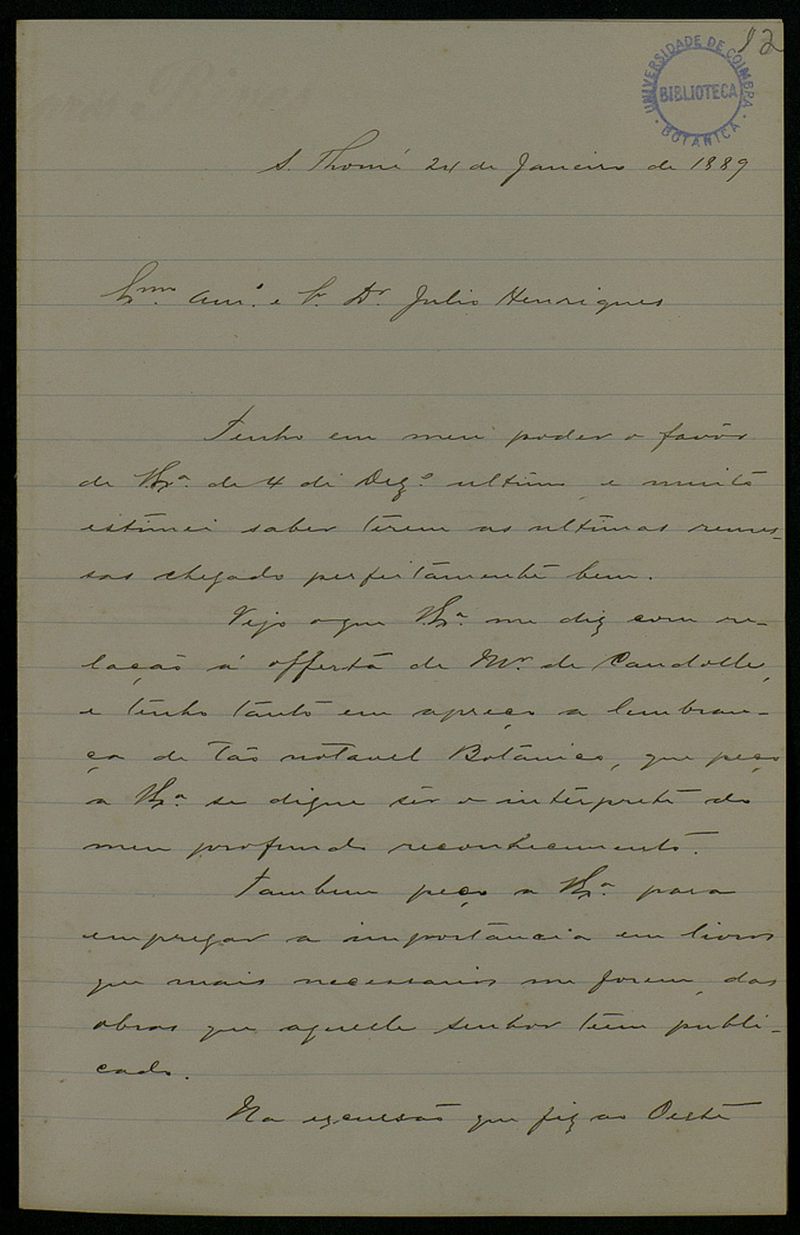 12
UNIVERSIDADE DE COIMBRA
BIBLIOTECA
BOTANICA
S. Thomé 24 de Janeiro de 1889
Exmo. Amo. e Sr. Dr. Julio Henriques
Tenho em meu poder o favôr
de V.Exa. de 4 de Dezo. ultimo, e muito
estimei saber terem as ultimas remes-
sas chegado perfeitamente bem.
Vejo o que V.Exa. me diz com re-
lação á offerta de Mr. de Candolle,
e tenho tanto em apreço a lembran-
ça de tão notavel Botanico, que peço
a V.Exa. se digne sêr o interprete do
meu profundo reconhecimento.
Tambem peço a V.Exa. para
empregar a importancia em livros
que mais necessarios me forem, das
obras que aquelle senhor tem publi-
cado.
Na excursão que fiz ao Oeste